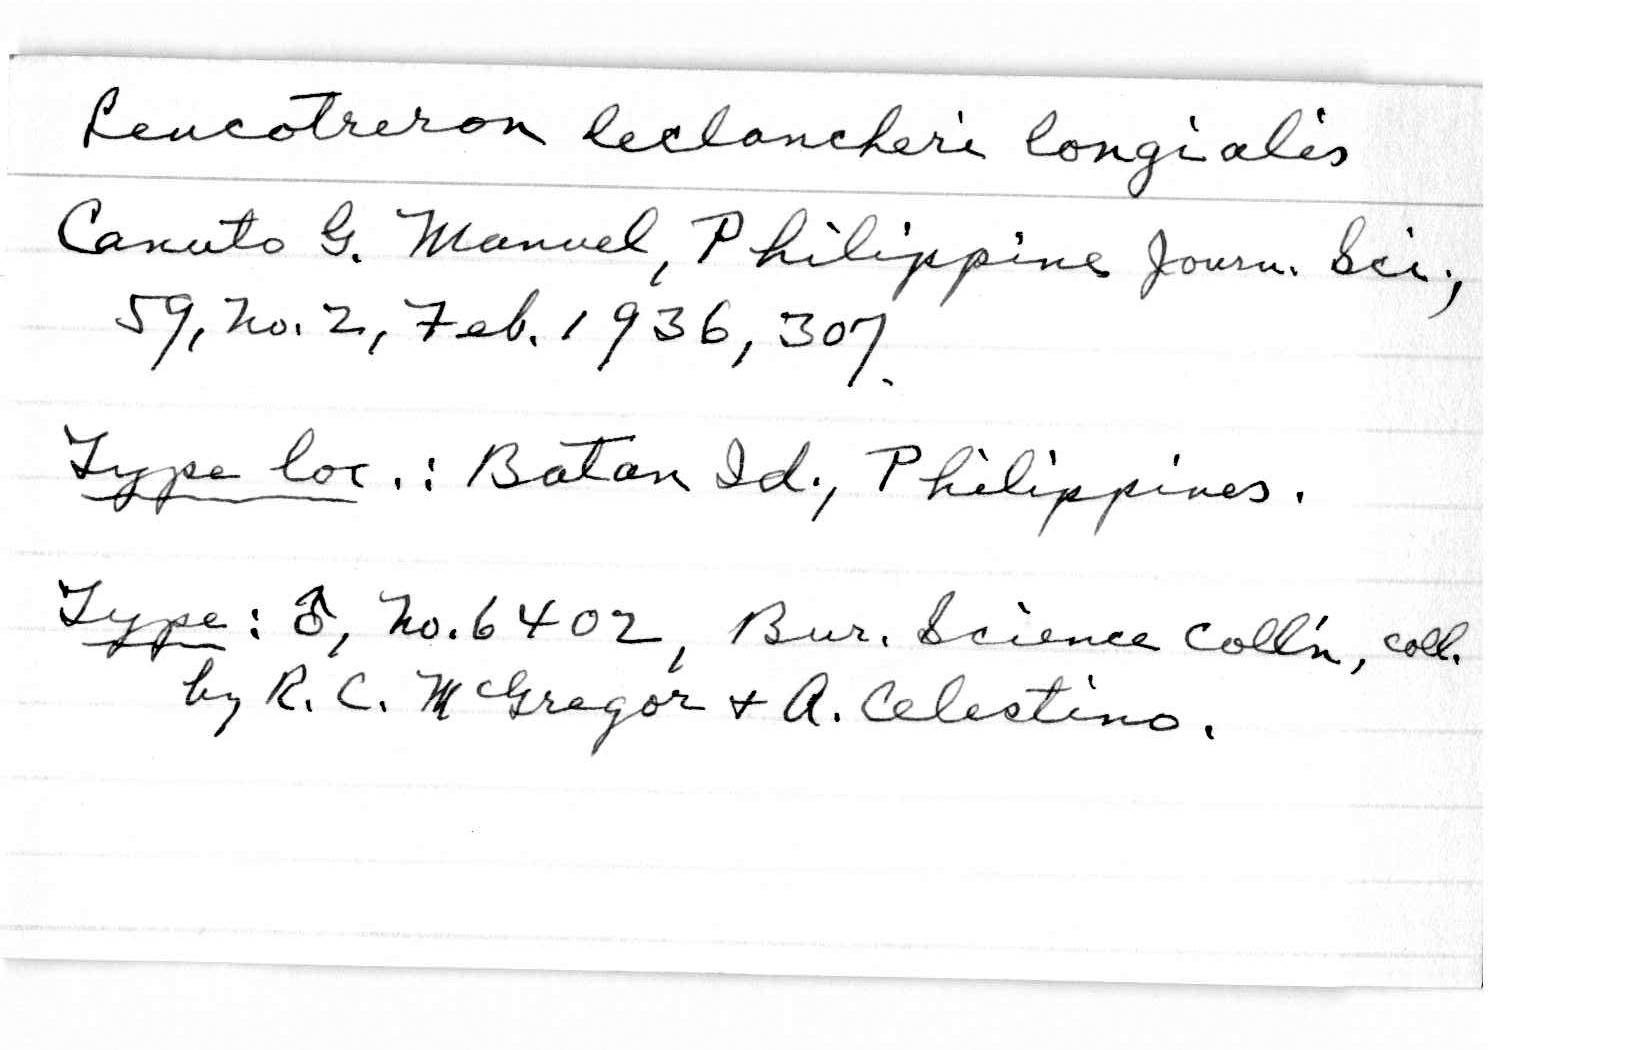 Leucotreron leclancheri longialis
Canuto G. Manuel, Philippine Journ. Sci.,
59, no. 2, Feb. 1936, 307.
Type loc.: Batan Id., Philippines.
Type: ♂, no. 6402, Bur. Science Coll'n, coll.
by R. C. McGregor + A. Celestino.